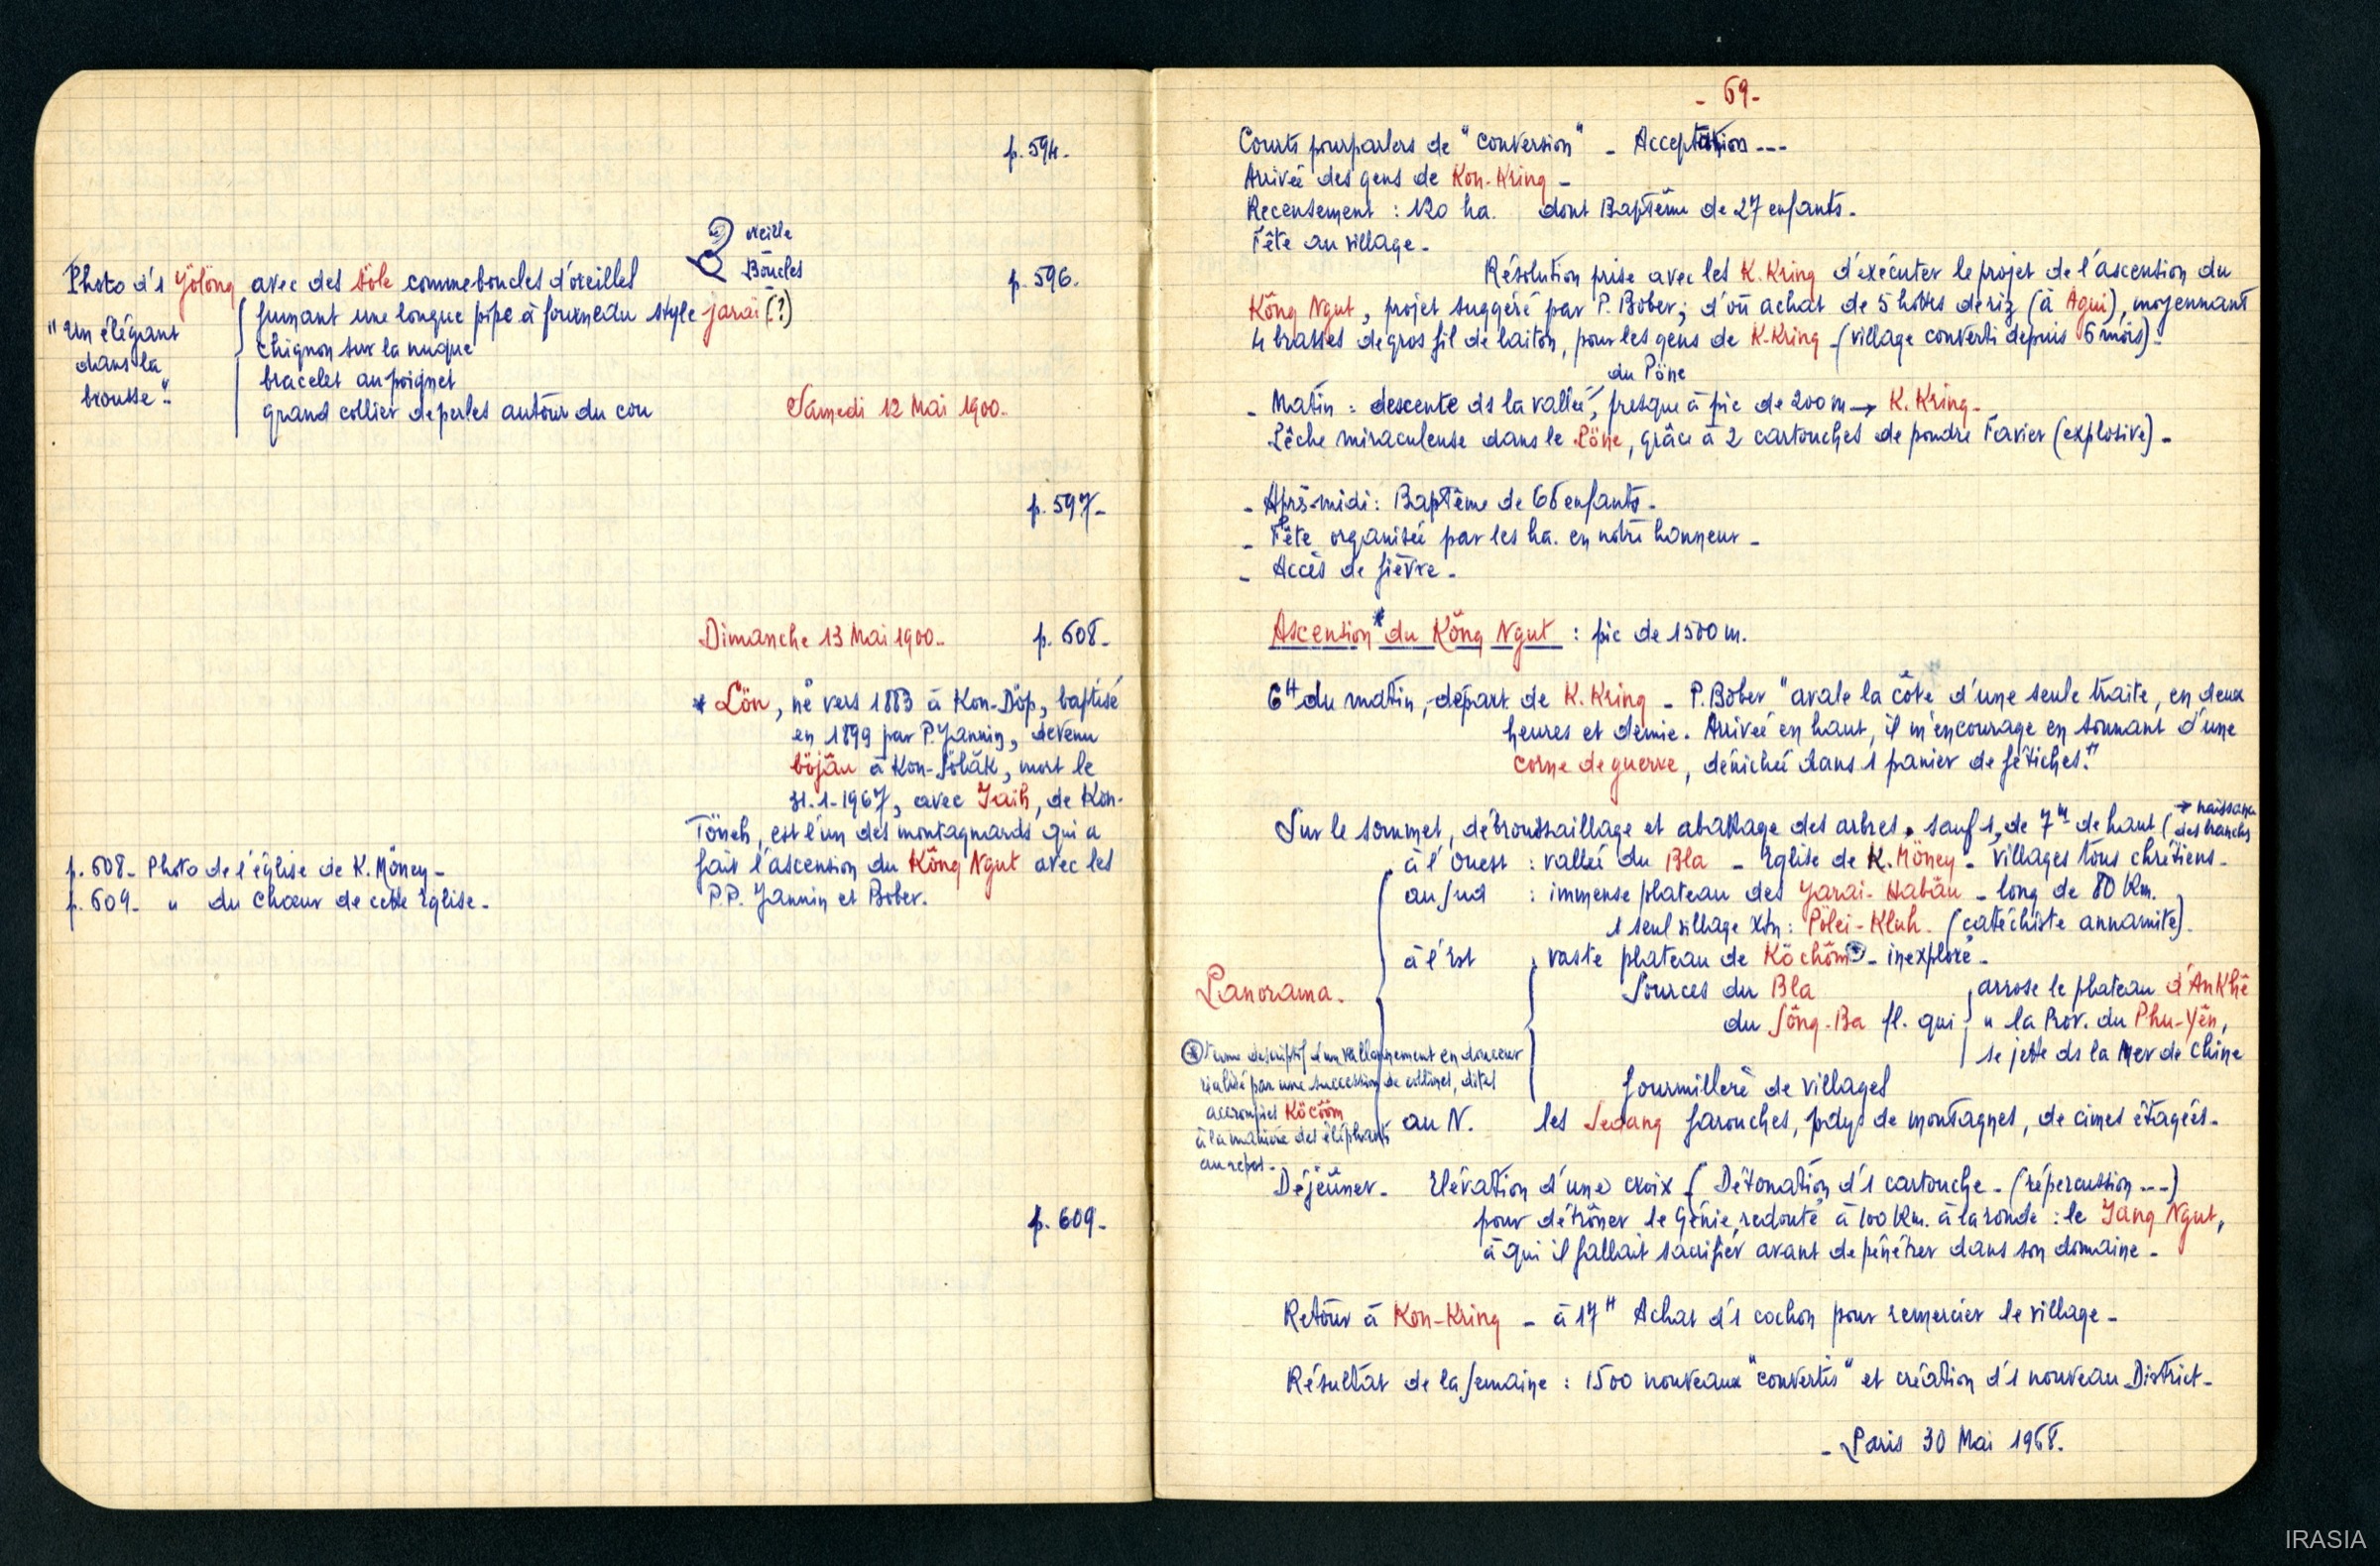 p. 594.
oreille
Boucles
Photo d'1 Yölöng avec des söle comme boucles d'oreilles
p. 596.
"Un élégant
dans la
brousse".
fumant une longue pipe à fourneau style jarai (?)
chignon sur la nuque
bracelet au poignet
grand collier de perles autour du cou
Samedi 12 Mai 1900.
p. 597.
Dimanche 13 Mai 1900.
p. 608.
* Lön, né vers 1883 à Kon-Döp, baptisé
en 1899 par P. Jannin, devenu
böjâu à Kon-Söbăk, mort le
31.1.1967, avec Jaih, de Kon-
Töneh, est l'un des montagnards qui a
fait l'ascension du Kông Ngut avec les
P.P. Jannin et Bober.
p. 608. Photo de l'église de K. Möney.
p. 609. " du Chœur de cette Eglise.
p. 609.
- 69 -
Courts pourparlers de "conversion" - Acceptation ---
Arrivée des gens de Kon-Kring -
Recensement : 120 ha. dont Baptême de 27 enfants.
Fête au village.
Résolution prise avec les K. Kring d'exécuter le projet de l'ascension du
Kông Ngut, projet suggéré par P. Bober; d'où achat de 5 hottes de riz (à Agui), moyennant
4 brasses de gros fil de laiton, pour les gens de K-Kring - (village converti depuis 6 mois).
du Pöne
- Matin : descente ds la vallée, presque à pic de 200 m → K. Kring.
Pêche miraculeuse dans le Pöne, grâce à 2 cartouches de poudre Favier (explosive) -
- Après-midi : Baptême de 66 enfants.
- Fête organisée par les ha. en notre honneur -
- Accès de fièvre.
Ascension * du Kông Ngut : pic de 1500 m.
6H du matin, départ de K. Kring - P. Bober "avale la côte d'une seule traite, en deux
heures et demie. Arrivée en haut, il m'encourage en sonnant d'une
corne de guerre, dénichée dans 1 panier de fétiches."
Sur le sommet, débroussaillage et abattage des arbres, sauf 1, de 7m de haut (→ naissance
des branches
à l'Ouest : vallée du Bla - Eglise de K. Möney - Villages tous chrétiens.
au Sud : immense plateau des Jarai-Habâu - long de 80 Km.
1 seul village Xtn : Pölei-Kluh. (catéchiste annamite).
à l'Est : vaste plateau de Köchôm ⊛ - inexploré -
Panorama.
Sources du Bla
du Sông-Ba fl. qui
arrose le plateau d'AnKhê
" la Prov. du Phu-Yên,
se jette ds la Mer de Chine
⊛ Terme descriptif d'un vallonnement en douceur
réalisé par une succession de collines, dites
accroupies Köcôôm
à la manière des éléphants
au repos.
fourmillère de villages
au N. les Sedang farouches, pays de montagnes, de cimes étagées.
Déjeûner. Elévation d'une croix (Détonation d'1 cartouche - (répercussion ---)
pour détrôner le Génie redouté à 100 Km. à la ronde : le Jang Ngut,
à qui il fallait sacrifier avant de pénétrer dans son domaine -
Retour à Kon-Kring - à 17H Achat d'1 cochon pour remercier le village -
Résultat de la semaine : 1500 nouveaux "convertis" et création d'1 nouveau District -
- Paris 30 Mai 1968.
IRASIA